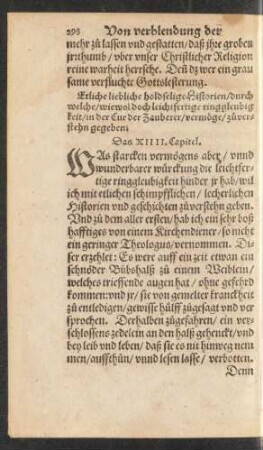 298 Von verblendung der
mehr zů lassen vnd gestatten/daß jhre groben
jrrthumb/vber vnser Christlicher Religion
reine warheit herrsche. Deñ dz wer ein grau
same verfluchte Gottslesterung.
Etliche liebliche holdselige Historien/durch
welche/wiewol doch leichtfertige ringgleubig
keit/in der Cur der Zauberer/vermöge/zů vers
stehn gegeben.
Das XIIII. Capitel.
WAs starcken vermögens aber/vnnd
wunderbarer würckung die leichtfer-
tige ringgleubigkeit hinder jr hab/wil
ich mit etlichen schimpfflichen/lecherlichen
Historien vnd geschichten zů verstehn geben.
Vnd zů dem aller ersten/hab ich ein sehr boß
hafftiges von einem Kirchendiener/so nicht
ein geringer Theologus/vernommen. Di-
ser erzehlet: Es were auff ein zeit etwan ein
schnöder Bůbshalß zů einem Weiblein/
welches trieffende augen hat/ohne gefehrd
kommen: vnd jr/sie von gemelter kranckheit
zů entledigen/gewisse hülff zůgesagt vnd ver
sprochen. Derhalben zůgefahren/ein ver-
schlossens zedelein an den halß gehenckt/vnd
bey leib vnd leben/daß sie es nit hinweg nem
men/auffthůn/vnnd lesen lasse/verbotten.
Denn